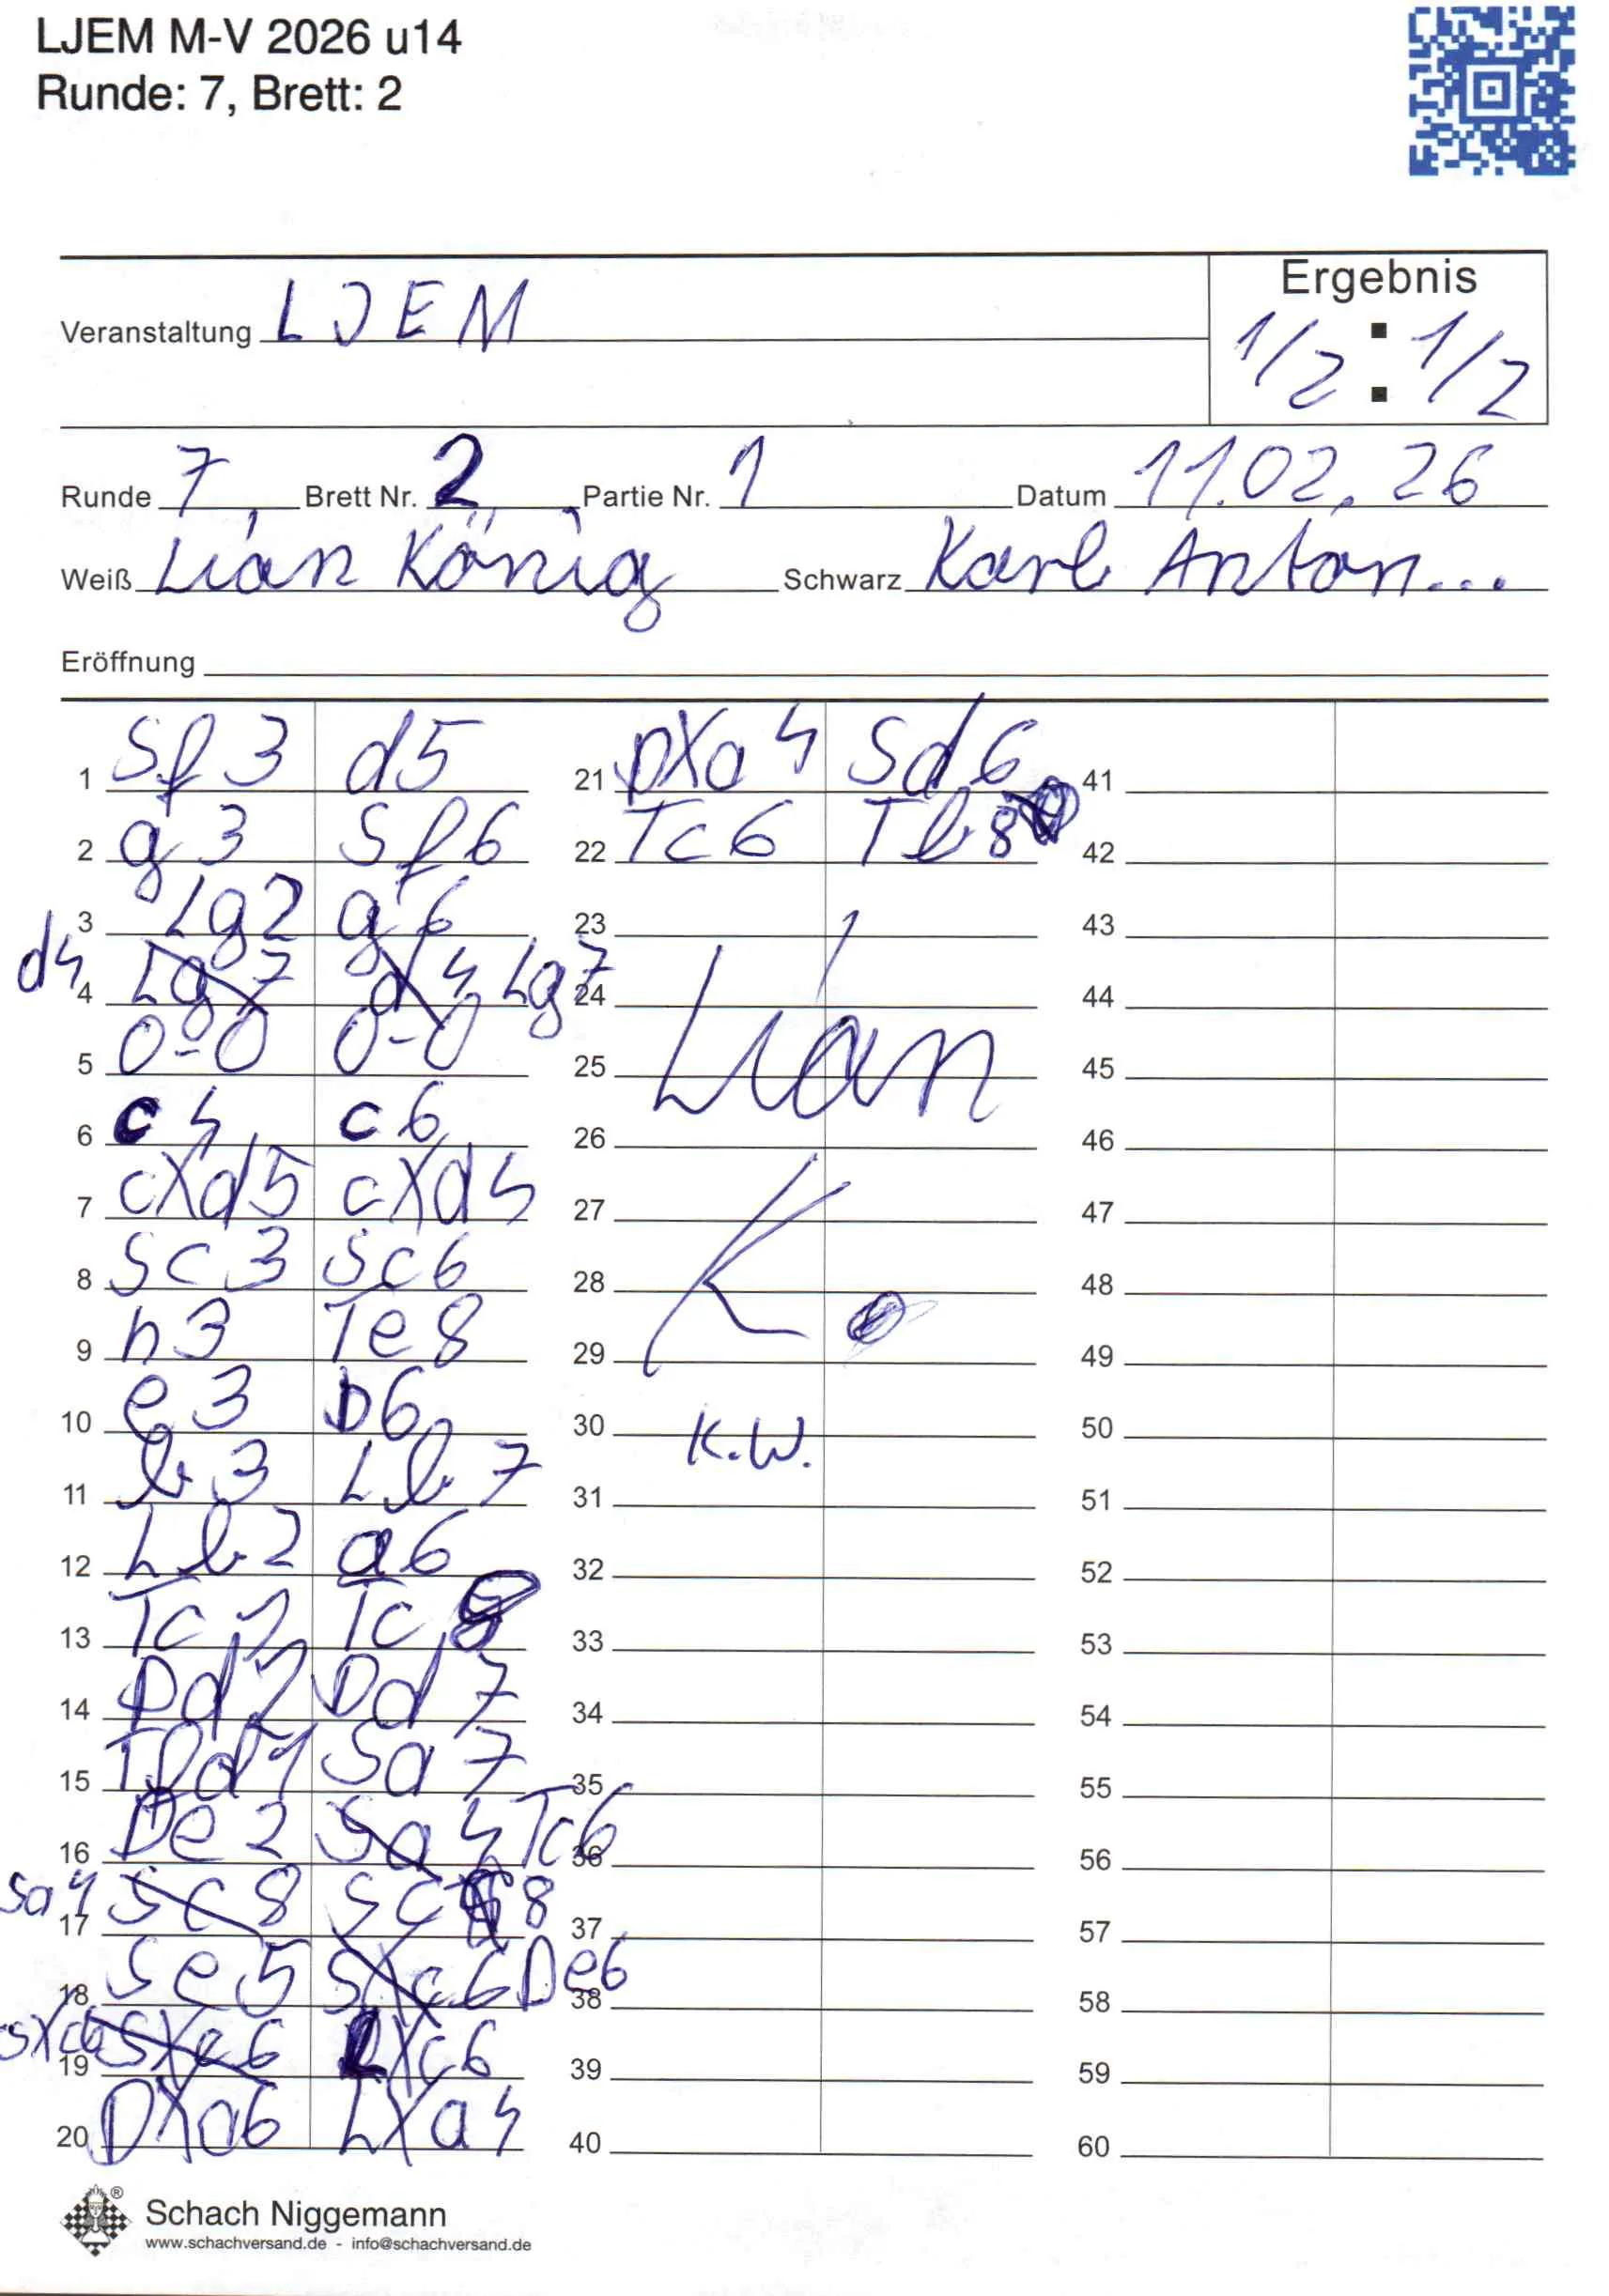 LJEM M-V 2026 u14
Runde: 7, Brett: 2
Ergebnis
Veranstaltung LJEM
1/2 : 1/2
Runde 7 Brett Nr. 2 Partie Nr. 1 Datum 11.02.26
Weiß Lian König Schwarz Karl Anton...
Eröffnung
1 Sf3 d5
2 g3 Sf6
3 Lg2 g6
4 d4 Lg7 d4 Lg7
5 0-0 0-0
6 c4 c6
7 cXd5 cXd5
8 Sc3 Sc6
9 h3 Te8
10 e3 b6
11 b3 Lb7
12 Lb2 a6
13 Tc1 Tc8
14 Dd2 Dd7
15 Tfd1 Sa7
16 De2 Sa4 Tc6
17 Sa4 Sc8 Sc8
18 Se5 SXc6 De6
19 SXc6 SXc6 LXc6
20 DXa6 LXa4
21 bXa4 Sd6
22 Tc6 Tb8
23
24
25 Lian
26
27
28 K.
29
30 K.W.
31
32
33
34
35
36
37
38
39
40
41
42
43
44
45
46
47
48
49
50
51
52
53
54
55
56
57
58
59
60
Schach Niggemann
www.schachversand.de - info@schachversand.de